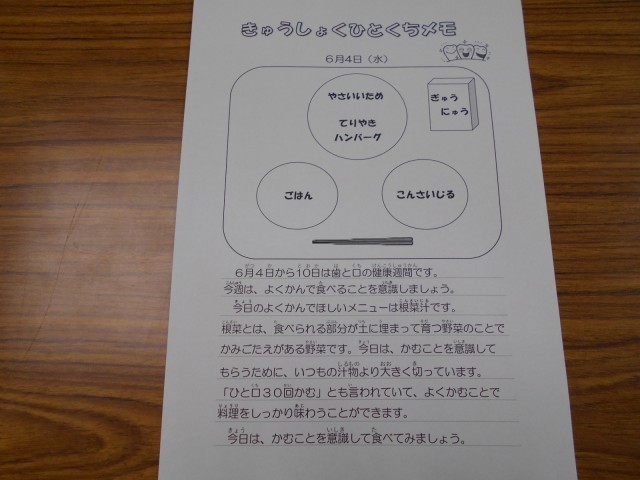 きゅうしょくひとくちメモ
6月4日（水）
やさいいため
てりやき
ハンバーグ
ぎゅう
にゅう
ごはん
こんさいじる
6月4日から10日は歯と口の健康週間です。
今週は、よくかんで食べることを意識しましょう。
今日のよくかんでほしいメニューは根菜汁です。
根菜とは、食べられる部分が土に埋まって育つ野菜のことで
かみごたえがある野菜です。今日は、かむことを意識して
もらうために、いつもの汁物より大きく切っています。
「ひと口30回かむ」とも言われていて、よくかむことで
料理をしっかり味わうことができます。
今日は、かむことを意識して食べてみましょう。